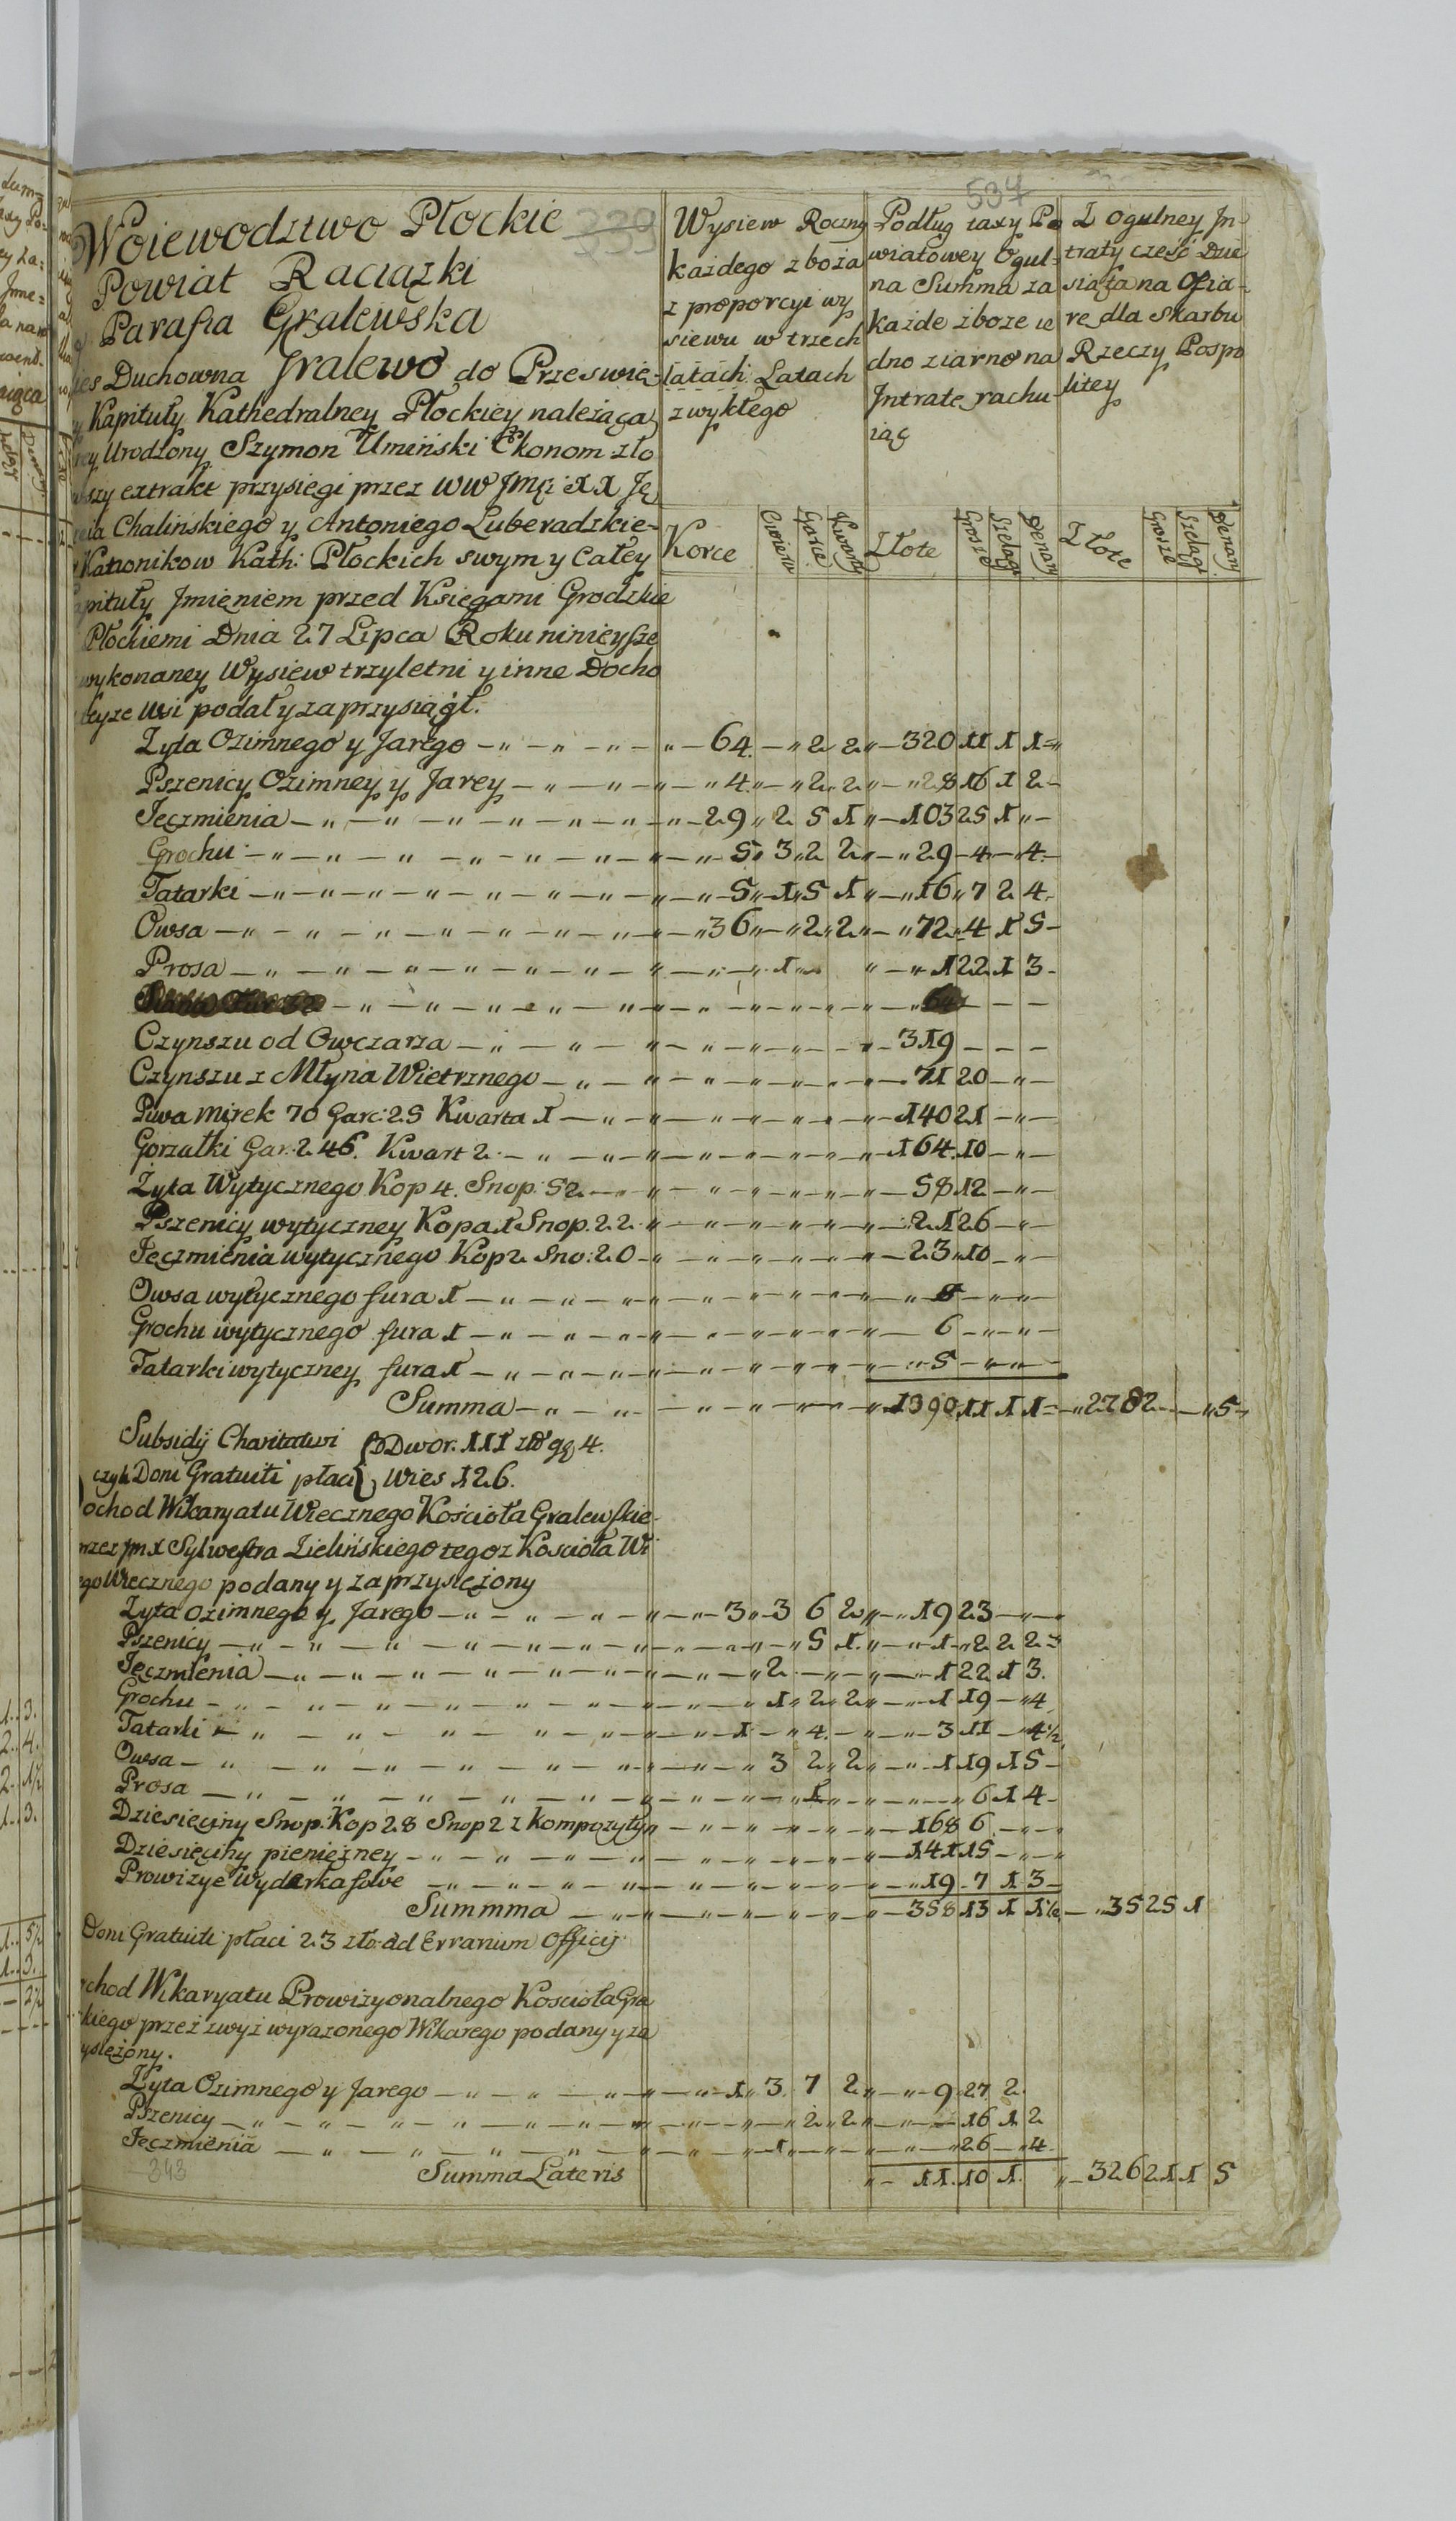 534
Woiewodztwo Płockie
Powiat Raciązki
Parafia Gralewska
Duchowna Jralewo do Przeswię-
Kapituły Kathedralney Płockiey należąca
Urodzony Szymon Umiński Ekonom zło
szy extrakt przysięgi przez WW Jmci XX Ję
Chalińskiego y Antoniego Luberadzkie-
Katnonikow Kath: Płockich swym y Całey
pituły Jmięniem przed Księgami Grodzkie
Płockiemi Dnia 27 Lipca Roku ninieysze
wykonaney Wysiew trzyletni y inne Docho
teyze Wsi podał y zaprzysiągł.
Wysiew Roczny
każdego zboża
z proporcyi wy
siewu w trzech
latach Latach
zwykłego
Podług taxy Po
wiatowey Ogul-
na Summa za
każde zboze ie
dno ziarno na
Jntratę rachu
iąc
Z Ogulney Jn-
traty część Dzie
siąta na Ofia-
rę dla Skarbu
Rzeczy Pospo
litey
Korce Cwierci Garce Kwarty Złote Grosze Szelągi Denary Złote Grosze Szelągi Denary
Zyta Ozimnego y Jarego — 64. — 2 2 — 320 11 1 1
Pszenicy Ozimney y Jarey — 4. — 2 2 — 28 16 1 2
Jęczmienia — 29 2 5 1 — 103 25 1 —
Grochu — 5 3 2 2 — 29 4 — 4
Tatarki — 5 1 5 1 — 16 7 2 4
Owsa — 36 — 2 2 — 72 4 1 5
Prosa — 1 — 1 22 1 3
Czynszu od Owczarza — 319 — — —
Czynszu z Młyna Wietrznego — 71 20 — —
Piwa Mirek 70 Garc: 25 Kwarta 1 — 140 21 — —
Gorzałki Gar: 246. Kwart 2 — 164. 10 — —
Zyta Wytycznego Kop 4. Snop: 52 — 58 12 — —
Pszenicy wytyczney Kopa 1 Snop. 22 — 21 26 — —
Jęczmienia wytycznego Kop 2 Sno: 20 — 23 10 — —
Owsa wytycznego fura 1 — 8 — — —
Grochu wytycznego fura 1 — 6 — — —
Tatarki wytyczney fura 1 — 5 — — —
Summa — 1390 11 1 1 — 278 2 — 5
Subsidij Charitativi { Dwor. 111 zł gr 4.
czyli Doni Gratuiti płaci { Wies 126.
ochod Wikaryatu Wiecznego Kościoła Gralewskie-
przez Jm X Sylwestra Zielińskiego tegoz Kościoła Wi
ego Wiecznego podany y zaprzysiężony
Zyta ozimnego y Jarego — 3 3 6 2 — 19 23 — —
Pszenicy — 5 1 — 1 2 2 2
Jęczmienia — 2 — 1 22 1 3.
Grochu — 1 2 2 — 1 19 — 4
Tatarki — 1 — 4 — 3 11 — 4½
Owsa — 3 2 2 — 1 19 1 5
Prosa — 1 — 6 1 4
Dziesięciny Snop: Kop 28 Snop 2 z kompozyty — 168 6 — —
Dziesięciny pieniężney — 141 15 — —
Prowizye Wyderkafowe — 19 7 1 3
Summma — 358 13 1 1½ — 35 25 1
Doni Gratuiti płaci 23 zło: ad Errarium Officij
chod Wikaryatu Prowizyonalnego Kościoła Gra
kiego przez zwyż wyrazonego Wikarego podany y za
ysiężony.
Zyta Ozimnego y Jarego — 1 3 7 2 — 9 27 2
Pszenicy — 2 2 — 16 1 2
Jęczmienia — 1 — 26 — 4
Summa Lateris — 11. 10 1. — 326 21 1 5
343